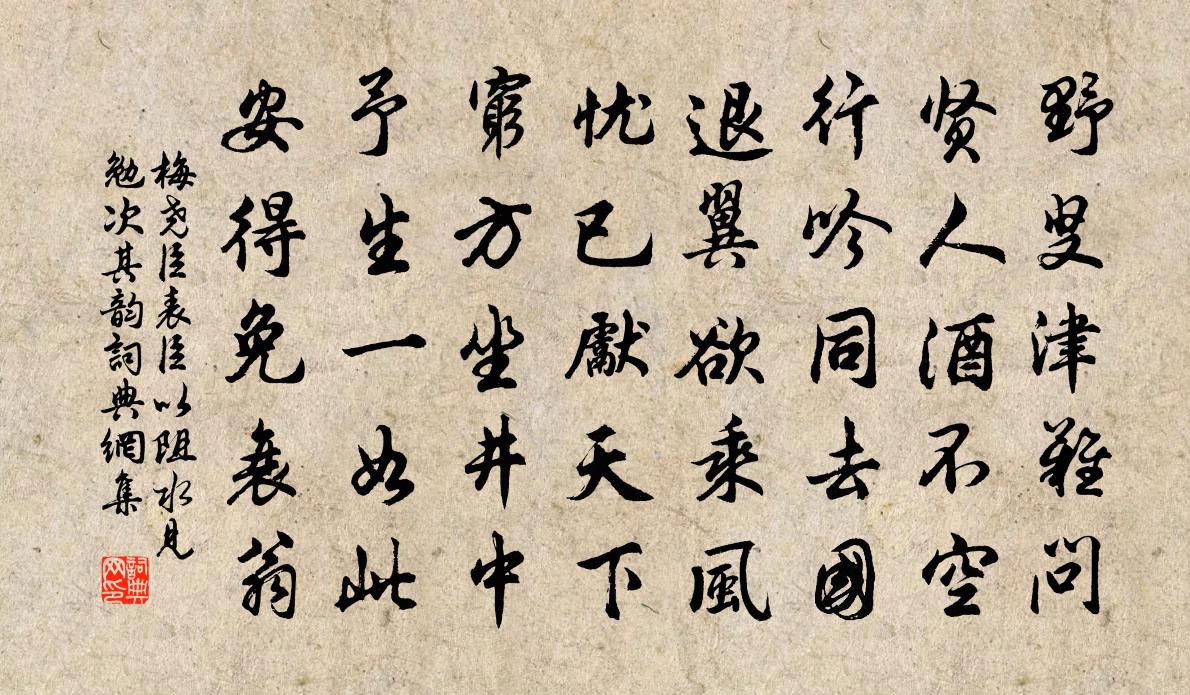 野叟津難问
贤人酒不空
行吟同去國
退翼欲乘風
忧已獻天下
窮方坐井中
予生一如此
安得免衰翁
梅尧臣表臣以阻水見
勉次其韵詞典網集
詞典网印